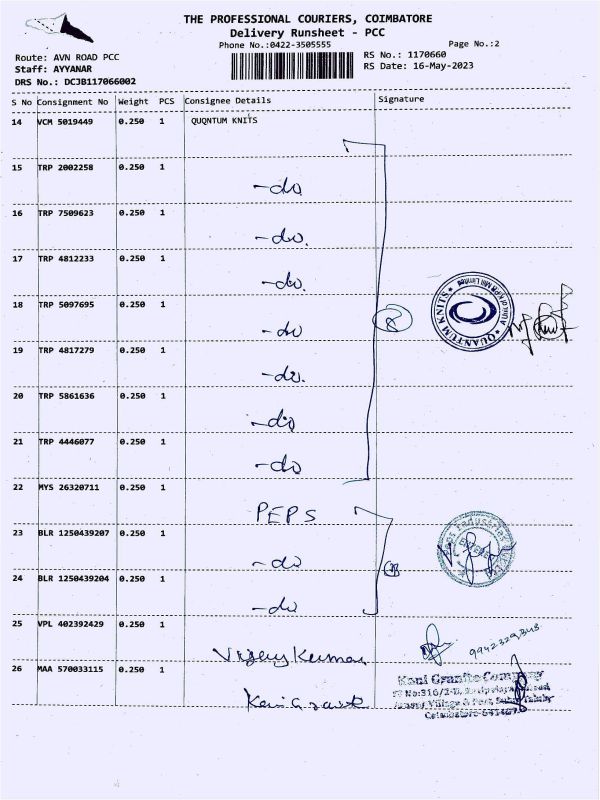 THE PROFESSIONAL COURIERS, COIMBATORE
Delivery Runsheet - PCC
Phone No.:0422-3505555
Page No.:2
Route: AVN ROAD PCC
RS No.: 1170660
Staff: AYYANAR
RS Date: 16-May-2023
DRS No.: DCJB117066002
S No Consignment No Weight PCS Consignee Details Signature
14 VCM 5019449 0.250 1 QUQNTUM KNITS
15 TRP 2002258 0.250 1
-do
16 TRP 7509623 0.250 1
-do.
17 TRP 4812233 0.250 1
-do.
18 TRP 5097695 0.250 1
-do
8
QUANTUM KNITS
19 TRP 4817279 0.250 1
-do.
20 TRP 5861636 0.250 1
-do
21 TRP 4446077 0.250 1
-do
22 MYS 26320711 0.250 1
PEPS
23 BLR 1250439207 0.250 1
-do
24 BLR 1250439204 0.250 1
-do
25 VPL 402392429 0.250 1
Vijay Kumar
26 MAA 570033115 0.250 1
Kani Granite Company